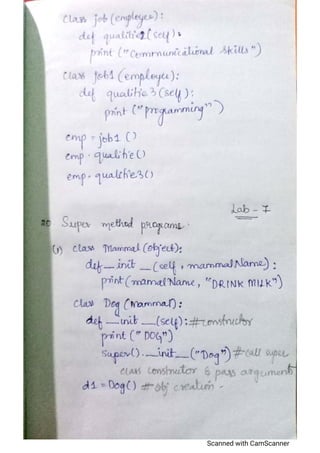 class job (employee):
def qualitie2(self):
print ("Communicational Skills")
class job1 (employee):
def qualitie3(self):
print ("programming")
emp = job1 ()
emp . qualitie ()
emp . qualitie3()
Lab - 7
20 Super method programs.
(1) class Mammal (object):
def __init__(self, mammalName):
print(mamalName, "DRINK MILK")
class Dog (Mammal):
def __init__(self): #constructor
print (" DOG")
super().__init__("Dog") #call super
class constructor & pass arguments
d1 = Dog() # obj creation.
Scanned with CamScanner